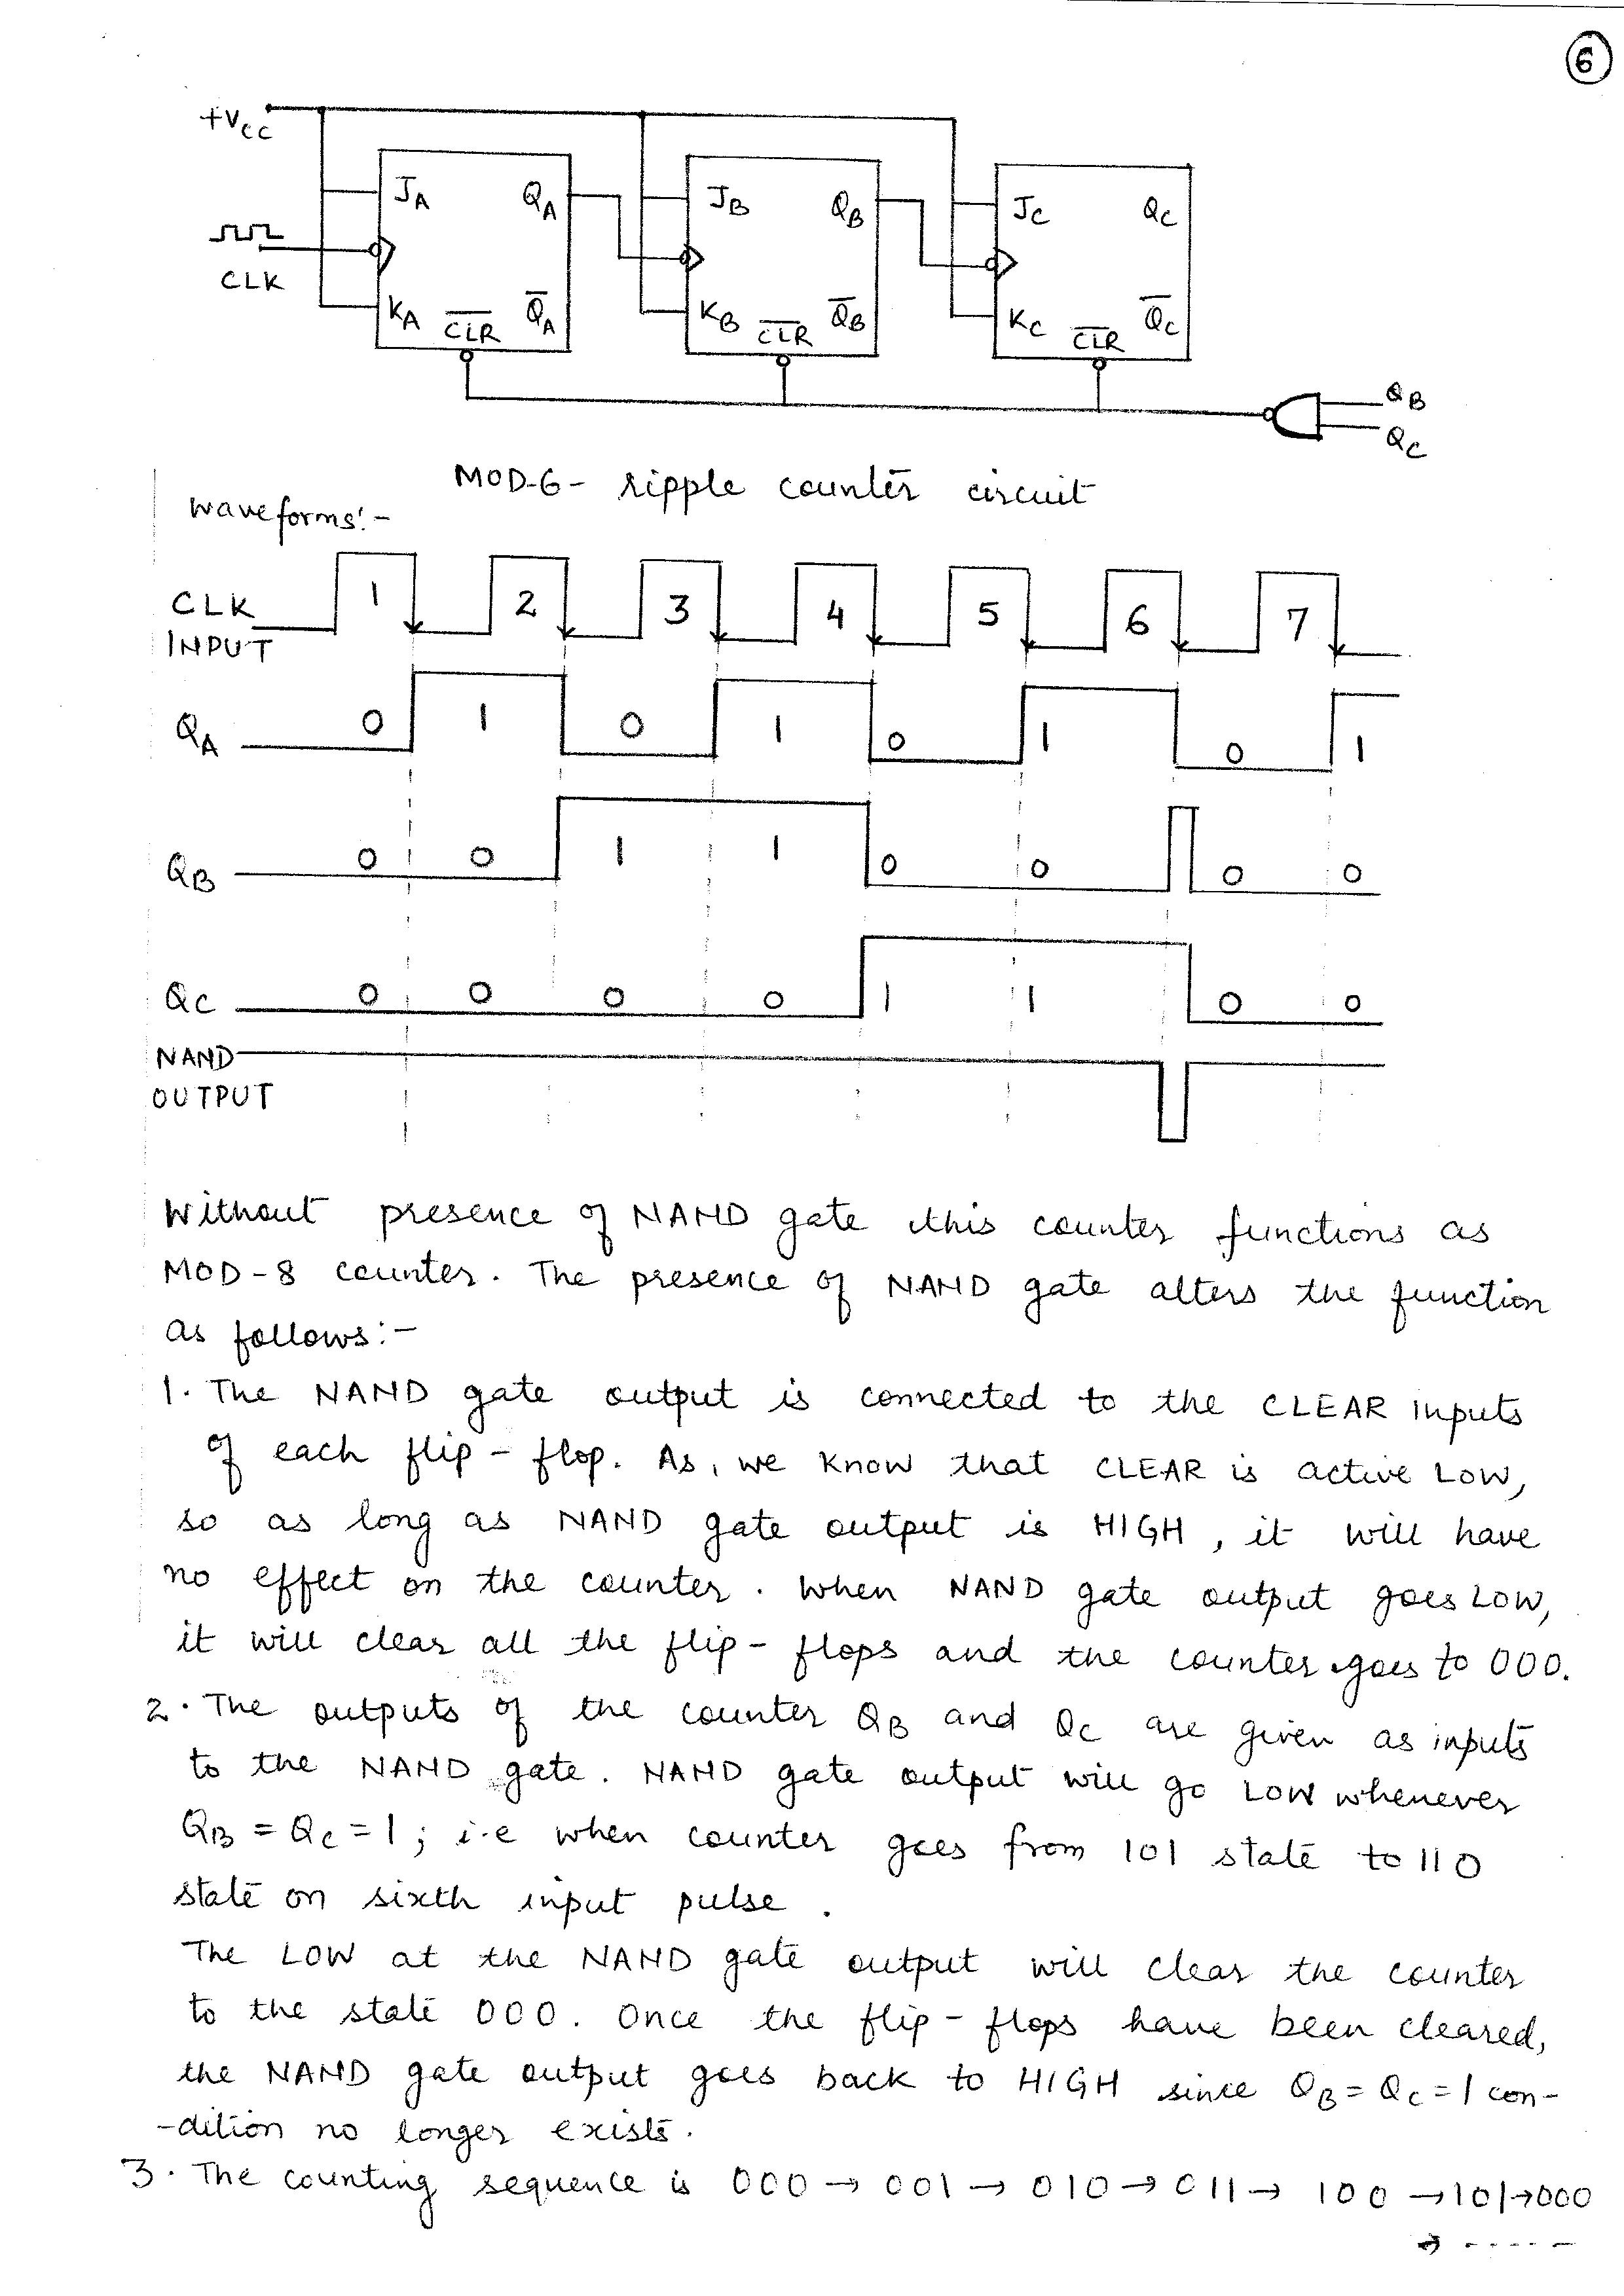 6
+VCC
JA QA JB QB JC QC
CLK
KA C̅L̅R̅ Q̅A KB C̅L̅R̅ Q̅B KC C̅L̅R̅ Q̅C
QB
QC
MOD-6- ripple counter circuit
Waveforms:-
CLK 1 2 3 4 5 6 7
INPUT
QA 0 1 0 1 0 1 0 1
QB 0 0 1 1 0 0 0 0
QC 0 0 0 0 1 1 0 0
NAND
OUTPUT
Without presence of NAND gate this counter functions as
MOD-8 counter. The presence of NAND gate alters the function
as follows:-
1. The NAND gate output is connected to the CLEAR inputs
of each flip-flop. As, we know that CLEAR is active LOW,
so as long as NAND gate output is HIGH, it will have
no effect on the counter. When NAND gate output goes LOW,
it will clear all the flip-flops and the counter goes to 000.
2. The outputs of the counter QB and QC are given as inputs
to the NAND gate. NAND gate output will go LOW whenever
QB = QC = 1; i.e when counter goes from 101 state to 110
state on sixth input pulse.
The LOW at the NAND gate output will clear the counter
to the state 000. Once the flip-flops have been cleared,
the NAND gate output goes back to HIGH since QB = QC = 1 con-
-dition no longer exists.
3. The counting sequence is 000 → 001 → 010 → 011 → 100 → 101 → 000
→ -----